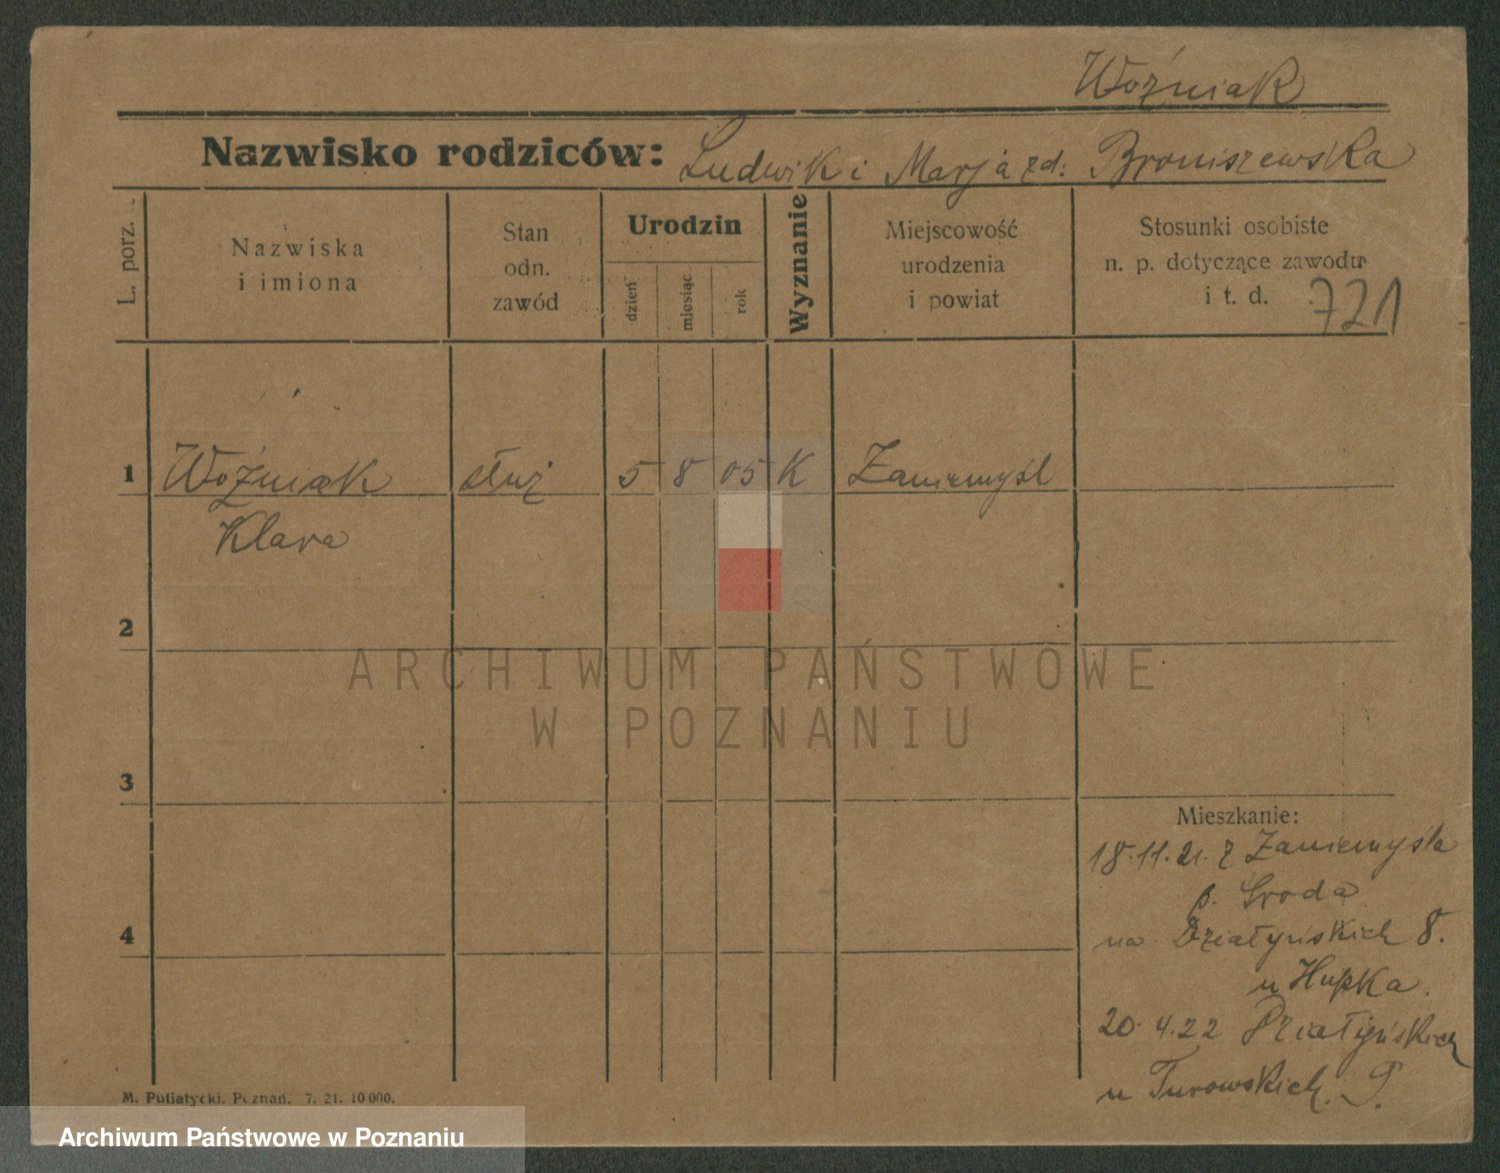 Woźniak
Nazwisko rodziców: Ludwik i Marja zd: Broniszewska
L. porz.
Nazwiska
i imiona
Stan
odn.
zawód
Urodzin
dzień
miesiąc
rok
Wyznanie
Miejscowość
urodzenia
i powiat
Stosunki osobiste
n. p. dotyczące zawodu
i t. d.
721
1 Woźniak służ 5 8 05 K Zaniemyśl
Klara
2
3
4
ARCHIWUM PAŃSTWOWE
W POZNANIU
Mieszkanie:
18.11.21. z Zaniemyśla
p. Środa
na Działyńskich 8.
u Hupka.
20.4.22 Działyńskich
u Turowskich.
M. Putiatycki. Poznań. 7. 21. 10 000.
Archiwum Państwowe w Poznaniu